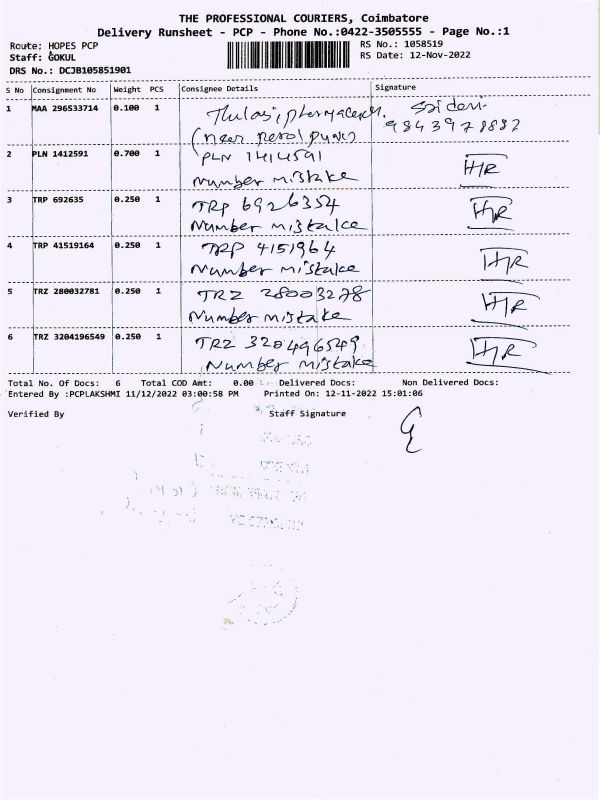 THE PROFESSIONAL COURIERS, Coimbatore
Delivery Runsheet - PCP - Phone No.:0422-3505555 - Page No.:1
Route: HOPES PCP RS No.: 1058519
Staff: GOKUL RS Date: 12-Nov-2022
DRS No.: DCJB105851901
S No Consignment No Weight PCS Consignee Details Signature
1 MAA 296533714 0.100 1
(near
2 PLN 1412591 0.700 1 PLN 1414591 HR
Number mistake
3 TRP 692635 0.250 1 TRP 6926354 HR
Number mistake
4 TRP 41519164 0.250 1 TRP 4151964 HR
Number mistake
5 TRZ 280032781 0.250 1 TRZ 28003278 HR
Number mistake
6 TRZ 3204196549 0.250 1 TRZ 320496549 HR
Number mistake
Total No. Of Docs: 6 Total COD Amt: 0.00 Delivered Docs: Non Delivered Docs:
Entered By :PCPLAKSHMI 11/12/2022 03:00:58 PM Printed On: 12-11-2022 15:01:06
Verified By Staff Signature